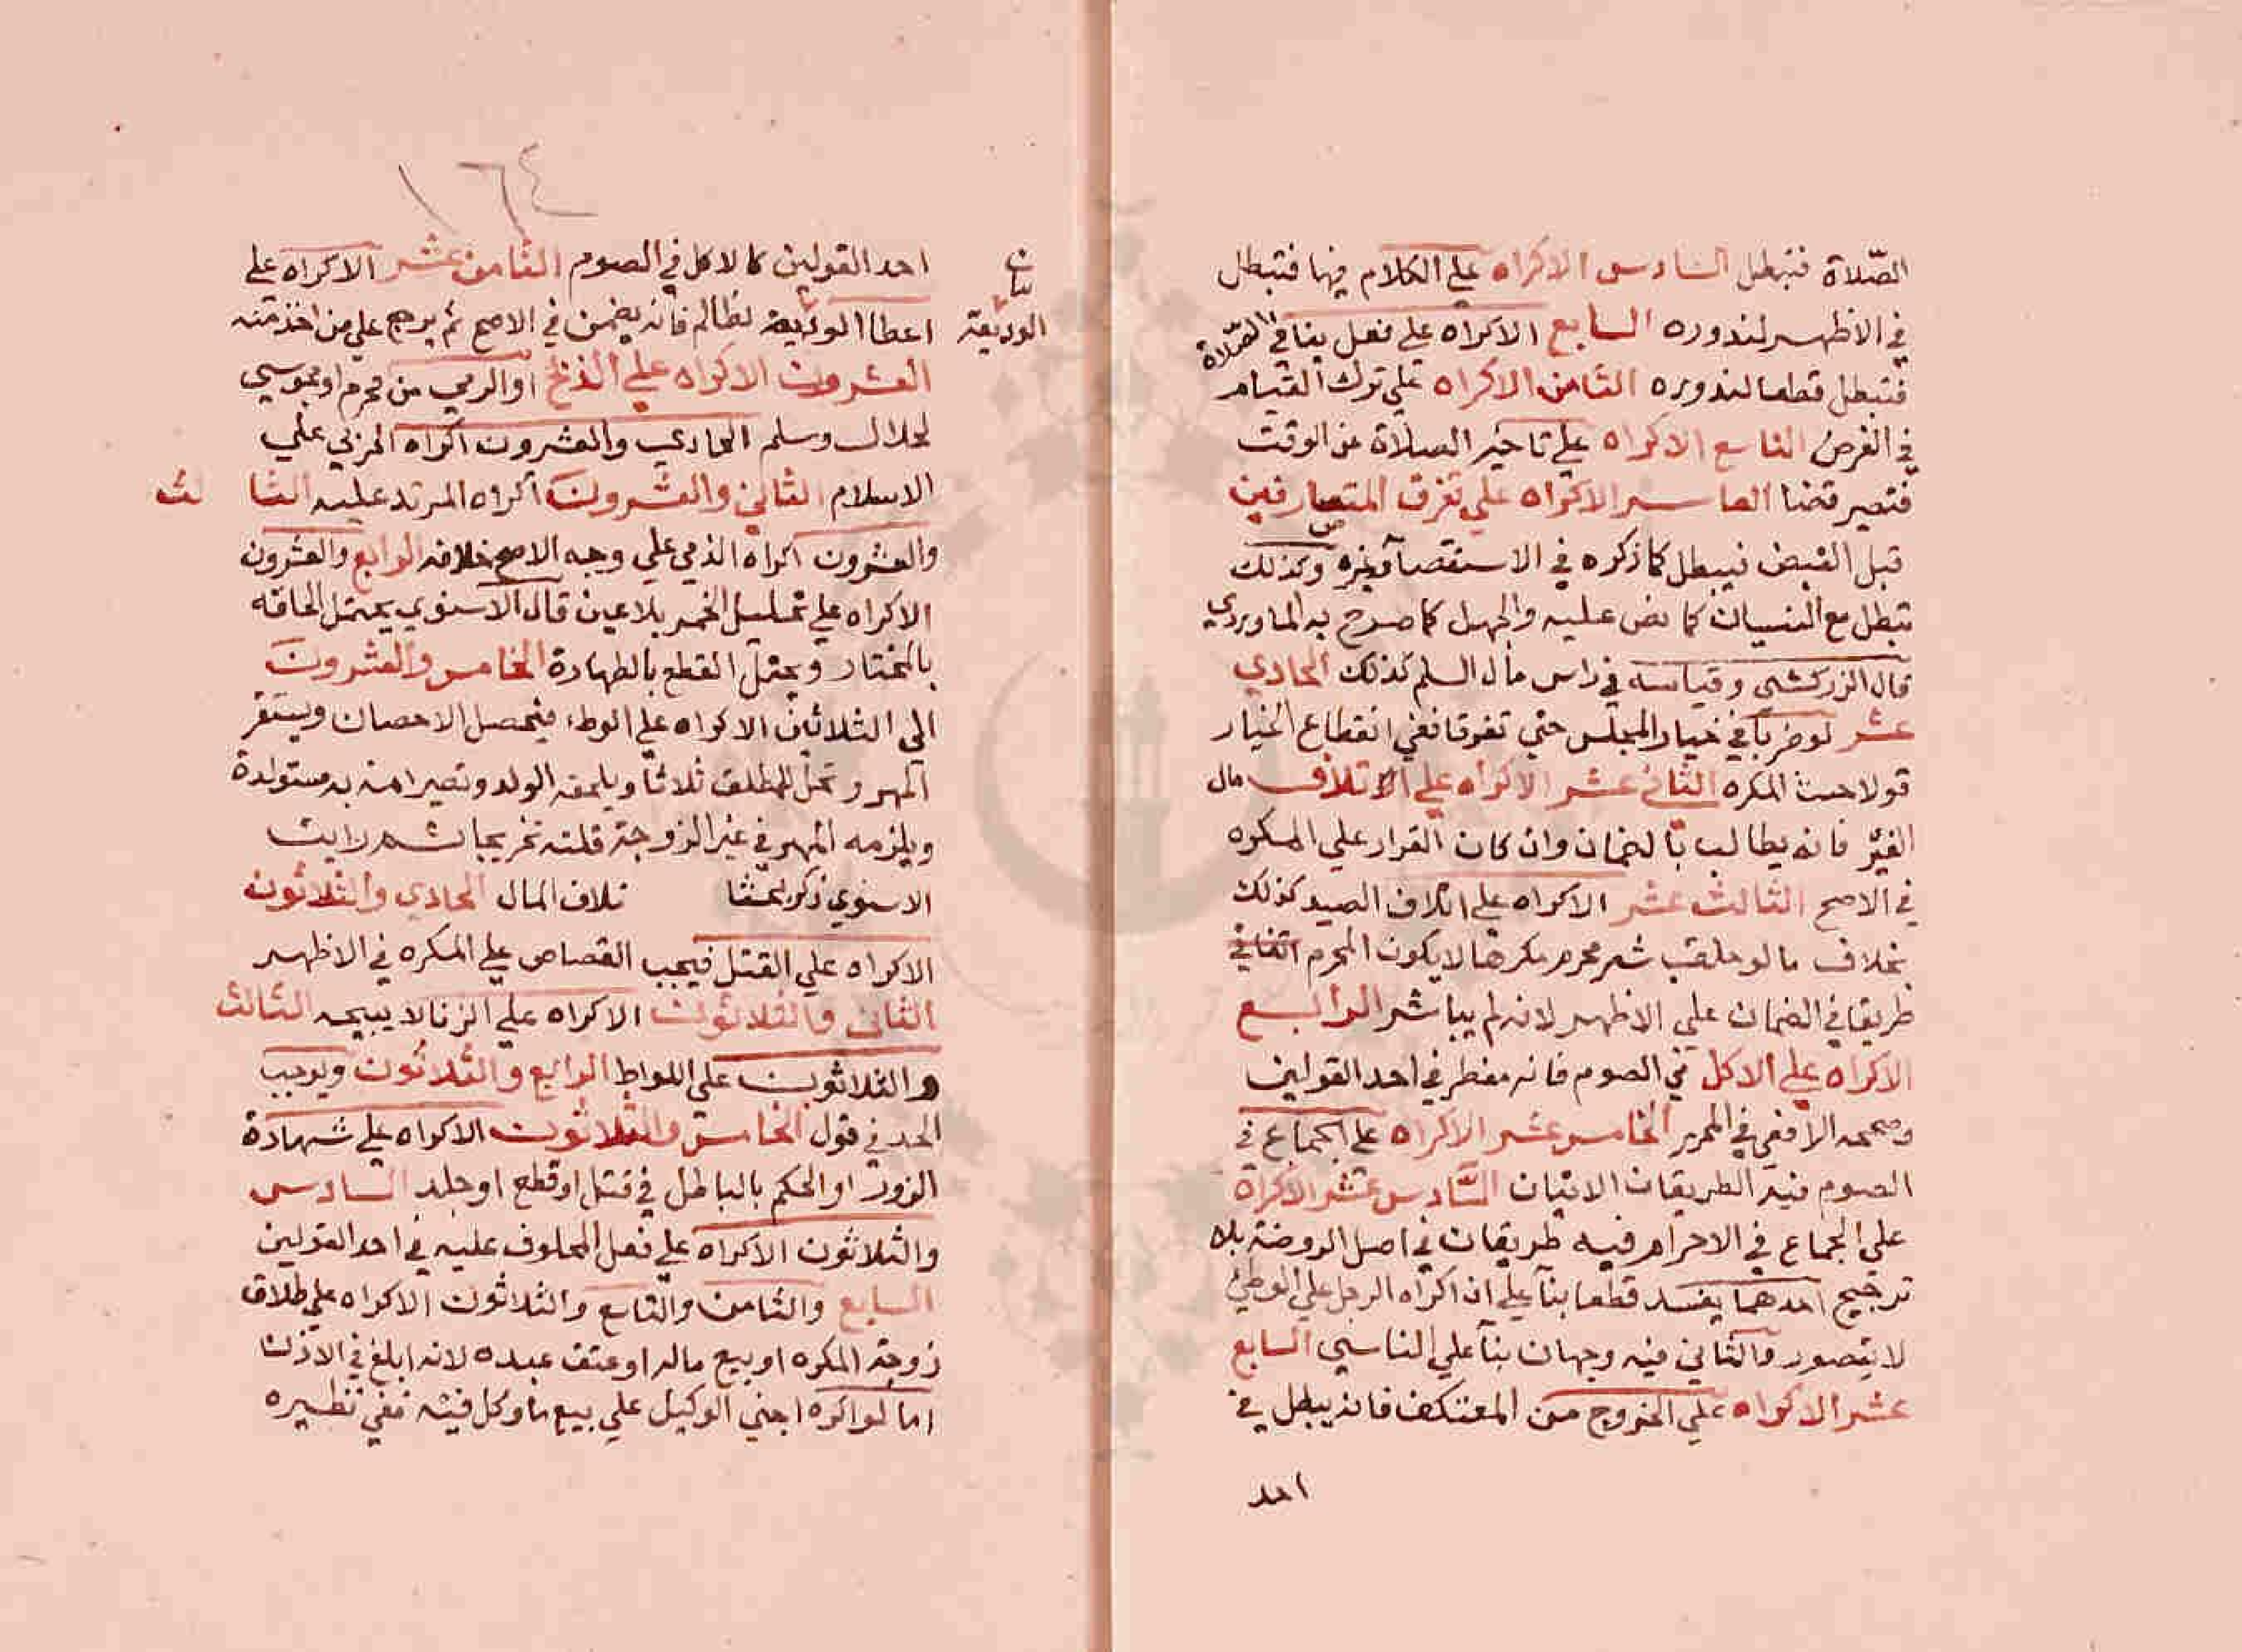 الصّلاة فتبطل السادس الاكراه علي الكلام فيها فتبطل
في الاظهر لندوره السابع الاكراه علي فعل ينافي الصّلاة
فتبطل قطعا لندوره الثامن الاكراه علي ترك القيام
في الفرض التاسع الاكراه علي تاخير الصلاة عن الوقت
فتصير قضا العاشر الاكراه علي تفرق المتصارفين
قبل القبض فيبطل كما ذكره في الاستقصآ وغيره وكذلك
تبطل مع النسيان كما نص عليه والجهل كما صرح به الماوردي
قال الزركشي وقياسه في راس مال السلم كذلك الحادي
عشر لو ضربا في خيار المجلس حتي تفرقا ففي انقطاع الخيار
قولا حنث المكره الثاني عشر الاكراه علي الاتلاف مال
الغير فانه يطالب بالضمان وان كان القرار علي المكره
في الاصح الثالث عشر الاكراه علي اتلاف الصيد كذلك
بخلاف ما لو حلق شعر محرم مكرها لا يكون المحرم
طريقا في الضمان علي الاظهر لانه لم يباشر الرابع
الاكراه علي الاكل في الصوم فانه مفطر في احد القولين
وصححه الرافعي في المحرر الخامس عشر الاكراه علي الجماع في
الصوم فيه الطريقان الاتيان السّادس عشر الاكراه
علي الجماع في الاحرام فيه طريقان في اصل الروضة بلا
ترجيح احدهما يفسد قطعا بنآ علي ان اكراه الرجل علي الوطئ
لا يتصور والثاني فيه وجهان بنآ علي الناسي السابع
عشر الاكراه علي الخروج من المعتكف فانه يبطل في
احد
١٦٤
احد القولين كالاكل في الصوم الثامن عشر الاكراه علي
اعطا الوديعة لظالم فانه يضمن في الاصح ثم يرجع علي من اخذ منه
الوديعة
العشرون الاكراه علي الذبح او الرمي من محرم او مجوسي
لحلال ومسلم الحادي والعشرون اكراه الحربي علي
الاسلام الثاني والعشرون اكراه المرتد عليه الثالث
والعشرون اكراه الذمي علي وجه الاصح خلافه الرابع والعشرون
الاكراه علي تخليل الخمر بلا عين قال الاسنوي يحتمل الحاقه
بالمختار ويحتمل القطع بالطهارة الخامس والعشرون
الي الثلاثين الاكراه علي الوطء فيحصل الاحصان ويستقر
المهر وتحل للمطلق ثلاثا ويلحقه الولد وتصير امته به مستولدة
ويلزمه المهر في غير الزوجة قلته تخريجا ثم رايت
الاسنوي ذكر بحثا تلاف المال الحادي والثلاثون
الاكراه علي القتل فيجب القصاص علي المكره في الاظهر
الثاني والثلاثون الاكراه علي الزنا لا يبيحه الثالث
والثلاثون علي اللواط الرابع والثلاثون ويوجب
الحد في قول الخامس والثلاثون الاكراه علي شهادة
الزور او الحكم بالباطل في قتل او قطع او جلد السادس
والثلاثون الاكراه علي فعل المحلوف عليه في احد القولين
السابع والثامن والتاسع والثلاثون الاكراه علي طلاق
زوجة المكره او بيع ماله او عتق عبده لانه ابلغ في الاذن
اما لو اكره اجنبي الوكيل علي بيع ما وكل فيه ففي نظيره